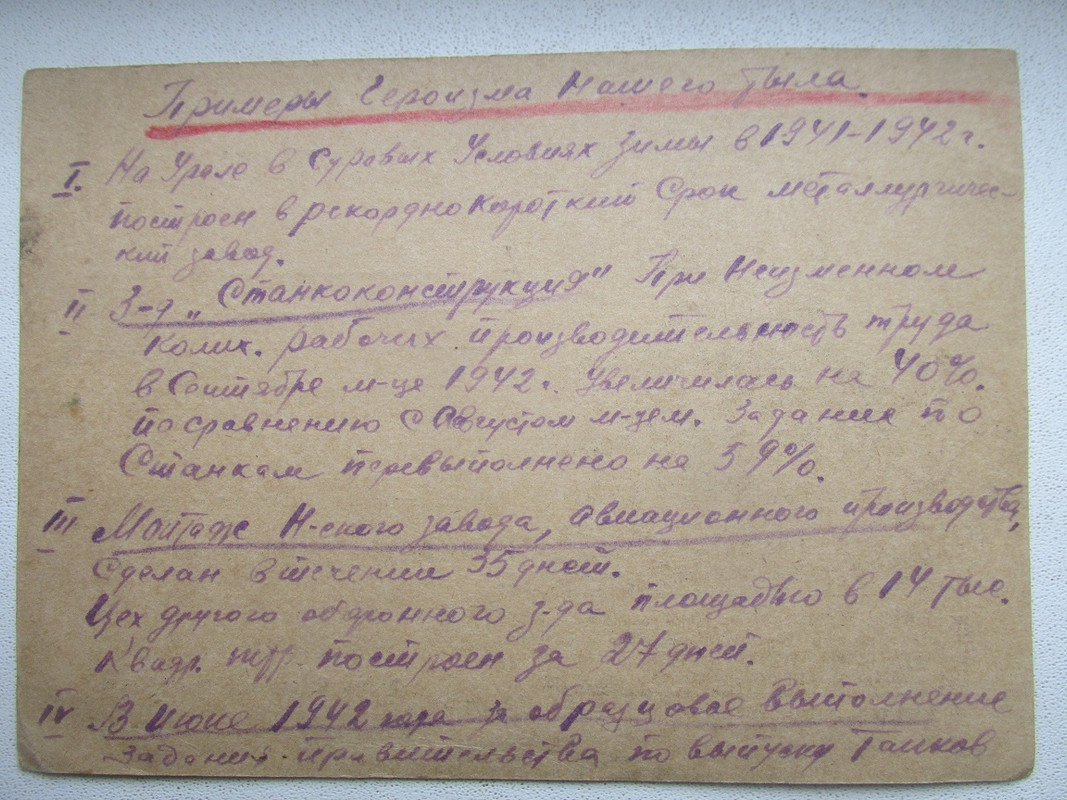 Примеры Героизма Нашего Тыла.
I. На Урале в Суровых Условиях зимы в 1941-1942 г.
построен в рекордно Короткий Срок металлургичес-
кий завод.
II З-д „Станкоконструкция" При Неизменном
колич. рабочих производительность труда
в Сентябре м-це 1942 г. увеличилась на 40%.
по сравнению с Августом м-цем. Задание по
Станкам перевыполнено на 59%.
III Монтаж Н-ского завода, авиационного производства,
сделан в течении 35 дней.
Цех другого оборонного з-да площадью в 14 тыс.
Квадр. мтр. построен за 27 дней.
IV В Июне 1942 года за образцовое Выполнение
Задания правительства по выпуску Танков